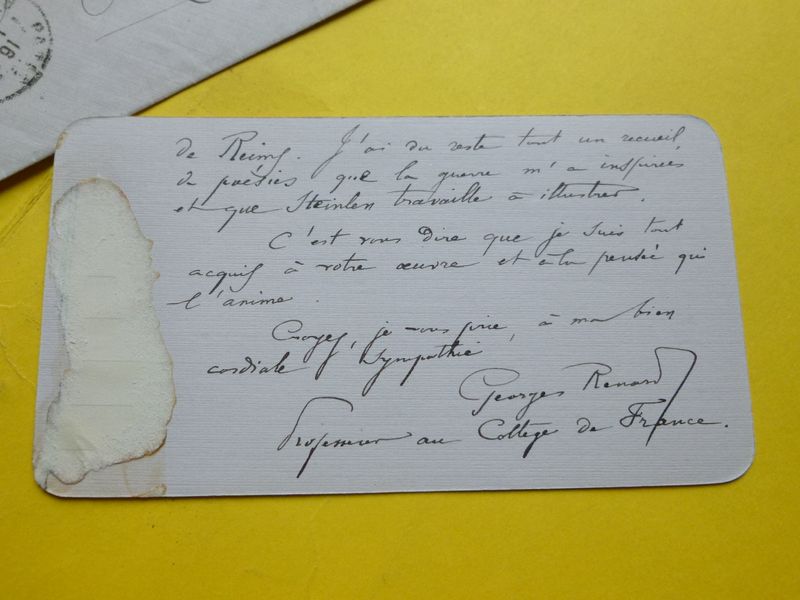 de Reims. J'ai du reste tout un recueil
de poésies que la guerre m'a inspirées
et que Steinlen travaille à illustrer.
C'est vous dire que je suis tout
acquis à votre œuvre et à la pensée qui
l'anime.
Croyez, je vous prie, à ma bien
cordiale sympathie
Georges Renard
Professeur au Collège de France.